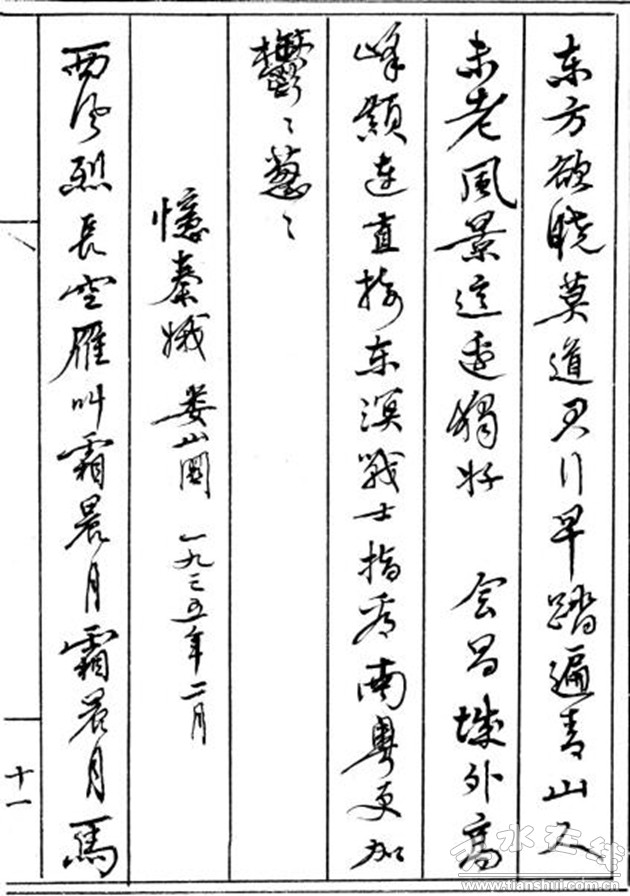 东方欲晓莫道君行早踏遍青山人
未老風景這边獨好　会昌城外高
峰顛连直接东溟戰士指看南粵更加
鬱〻葱〻
憶秦娥 娄山關 一九三五年二月
西风烈長空雁叫霜晨月霜晨月馬
十一
天水在线
www.tianshui.com.cn